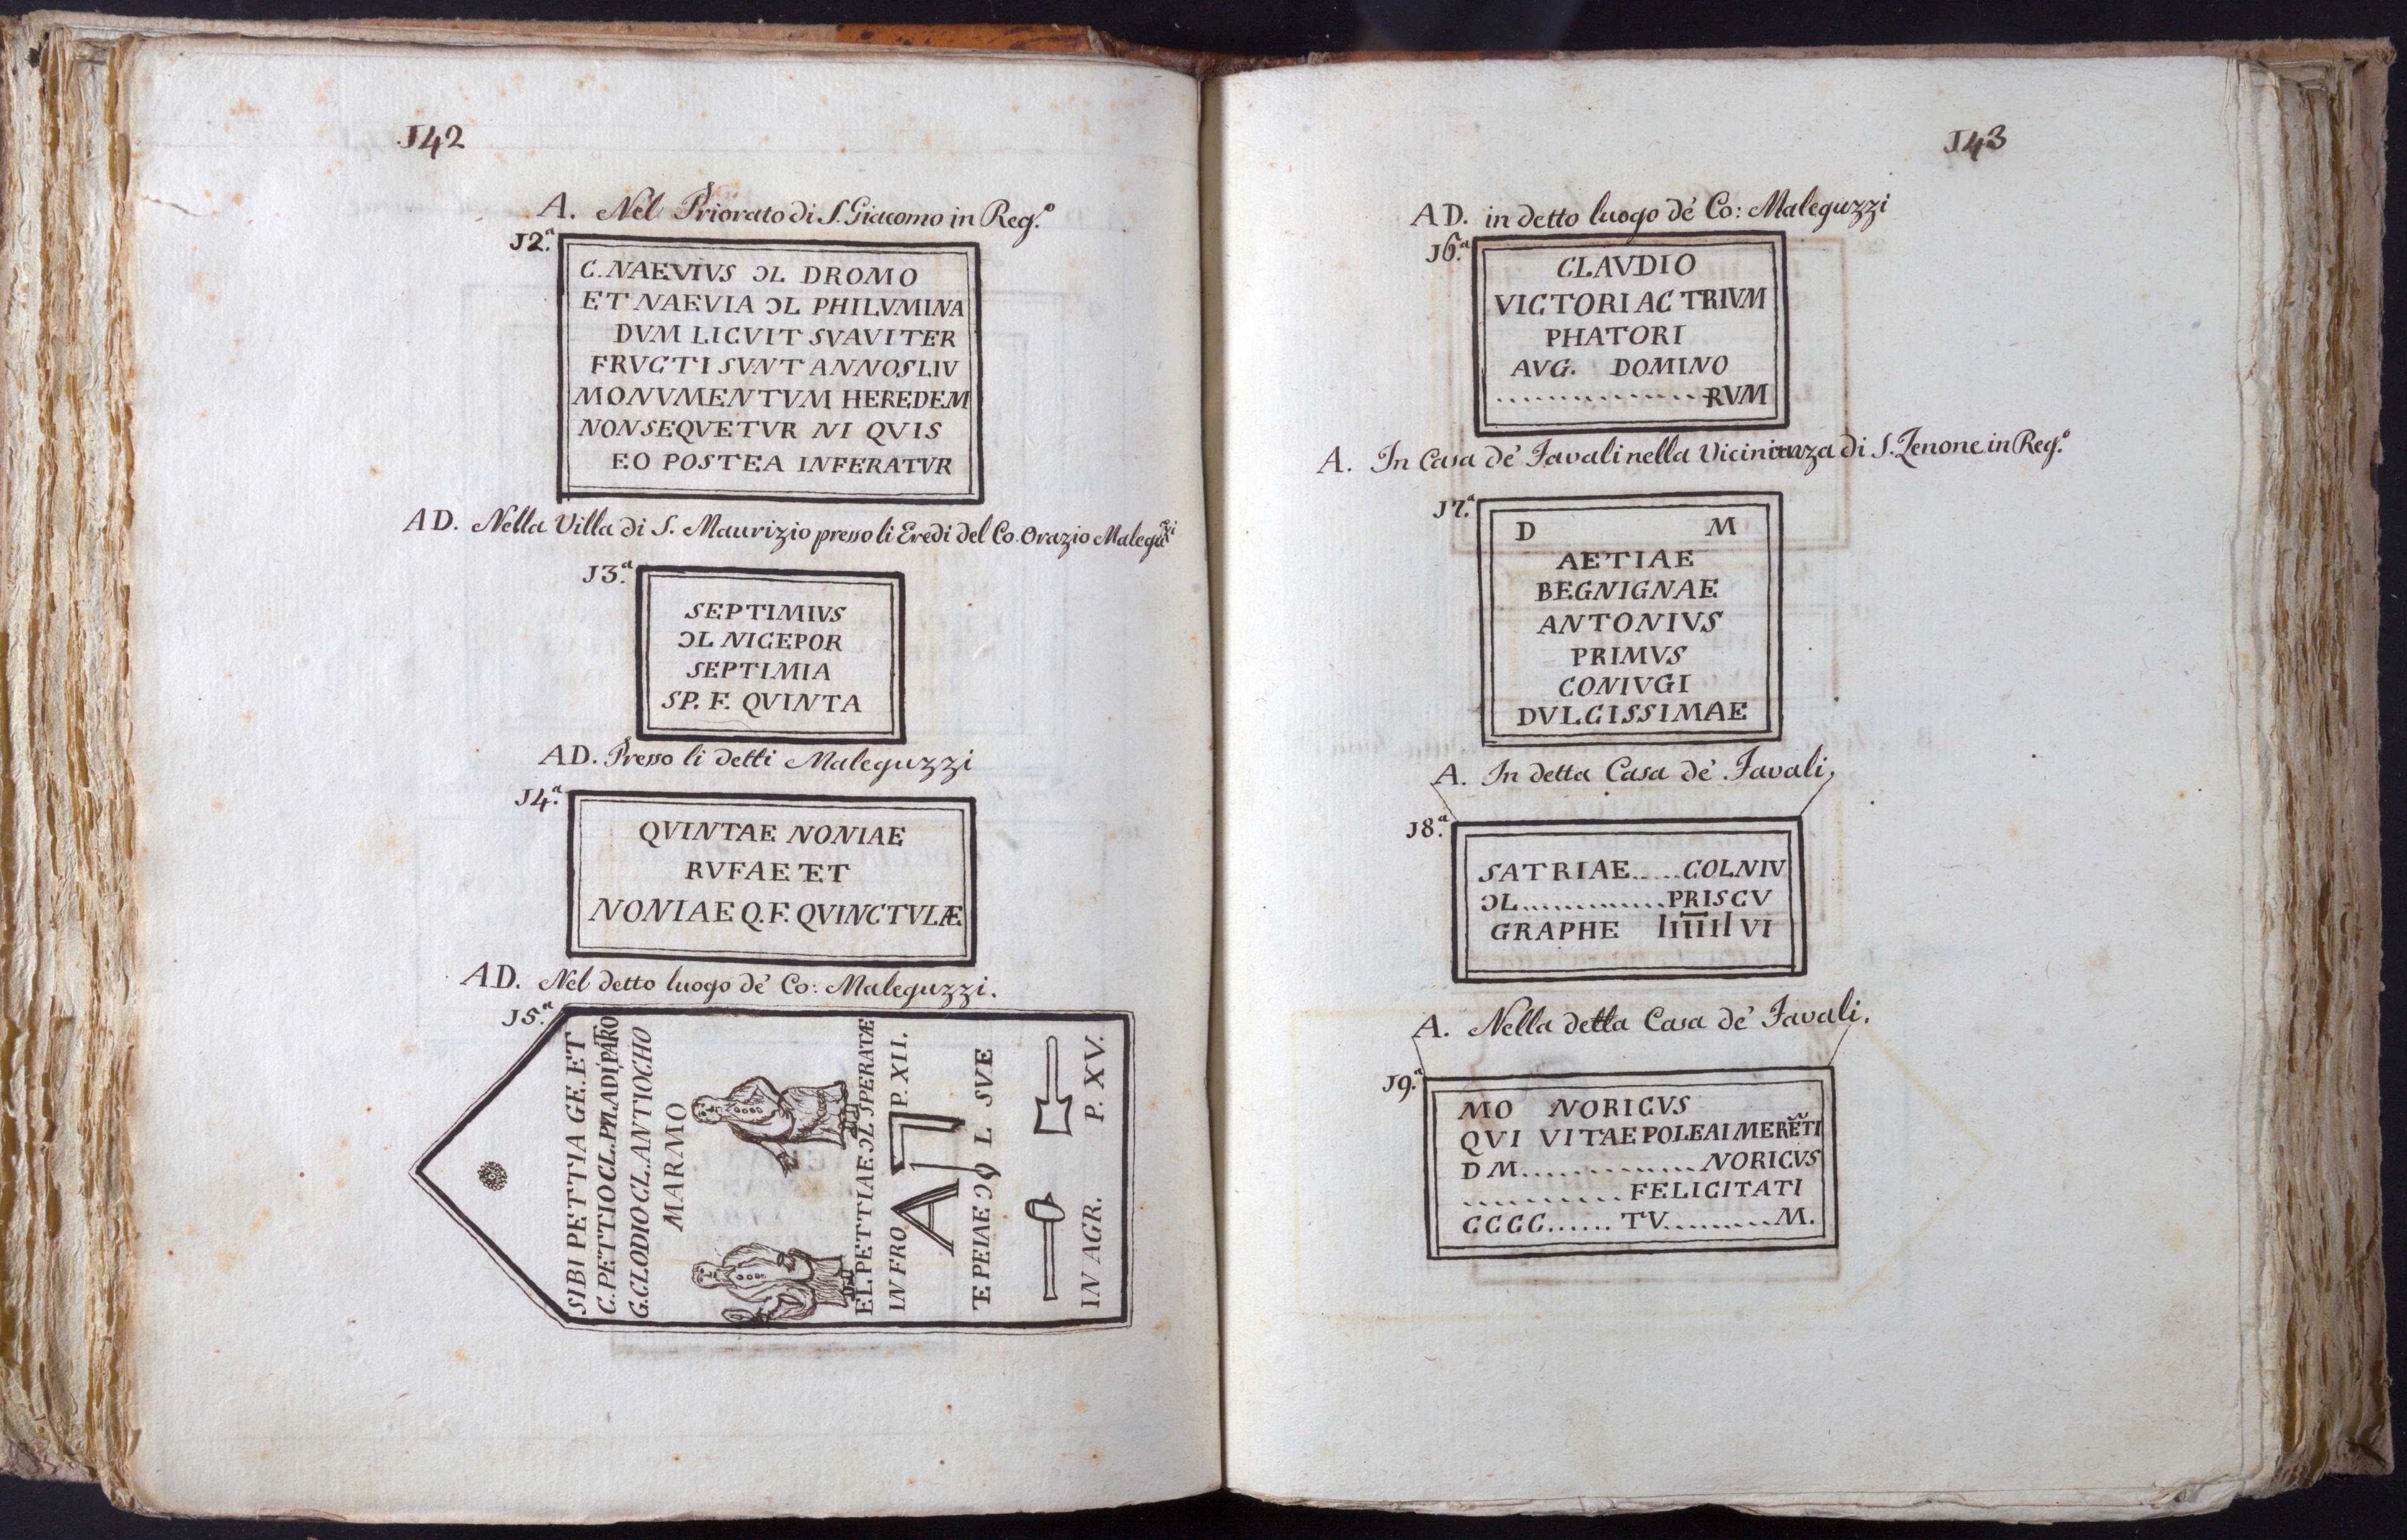 142
A. Nel Priorato di S. Giacomo in Reg.º
12.ª
C. NAEVIVS ƆL DROMO
ET NAEVIA ƆL PHILVMINA
DVM LICVIT SVAVITER
FRVCTI SVNT ANNOS LIV
MONVMENTVM HEREDEM
NON SEQVETVR NI QVIS
EO POSTEA INFERATVR
AD. Nella Villa di S. Maurizio presso li Eredi del Co. Orazio Maleguzzi
13.ª
SEPTIMIVS
ƆL NICEPOR
SEPTIMIA
SP. F. QVINTA
AD. Presso li detti Maleguzzi
14.ª
QVINTAE NONIAE
RVFAE ET
NONIAE Q. F. QVINCTVLÆ
AD. Nel detto luogo de' Co: Maleguzzi.
15.ª
SIBI PETTIA GE. ET
C. PETTIO CL. PYLADI PATRO
G. CLODIO CL. ANTIOCHO
MARMO
EL PETTIAE ƆL SPERATÆ
IN FRO P. XII.
A
TE PEIAE Ɔ L SVE
IN AGR. P. XV.
143
AD. in detto luogo de' Co: Maleguzzi
16.ª
CLAVDIO
VICTORI AC TRIVM
PHATORI
AVG. DOMINO
...............RVM
A. In Casa de' Favali nella Vicinanza di S. Zenone in Reg.º
17.ª
D M
AETIAE
BEGNIGNAE
ANTONIVS
PRIMVS
CONIVGI
DVLCISSIMAE
A. In detta Casa de' Favali,
18.ª
SATRIAE.....COLNIV
ƆL.............PRISCV
GRAPHE IIIIII VI
A. Nella detta Casa de' Favali.
19.ª
MO NORICVS
QVI VITAE POLEAI MERĔTI
D M.............NORICVS
..........FELICITATI
CCCC......TV.........M.